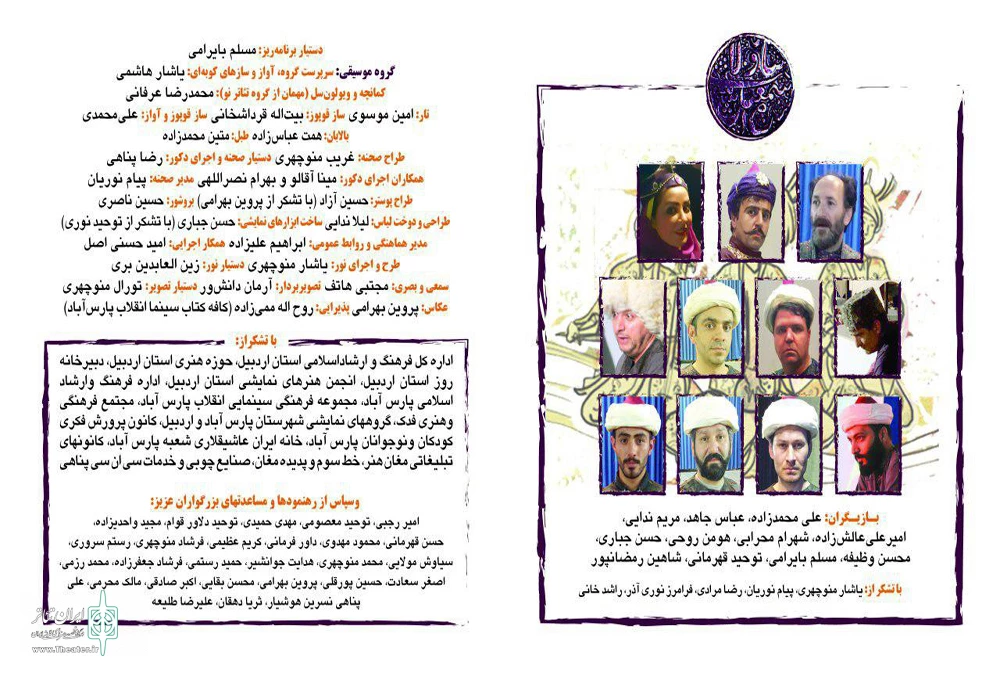 بازیگران: علی محمدزاده، عباس جاهد، مریم ندایی،
امیرعلی‌عالش‌زاده، شهرام محرابی، هومن روحی، حسن جباری،
محسن وظیفه، مسلم بایرامی، توحید قهرمانی، شاهین رمضانپور
با تشکر از: یاشار منوچهری، پیام نوریان، رضا مرادی، فرامرز نوری آذر، راشد خانی
دستیار برنامه‌ریز: مسلم بایرامی
گروه موسیقی: سرپرست گروه، آواز و سازهای کوبه‌ای: یاشار هاشمی
کمانچه و ویولون‌سل (مهمان از گروه تئاتر نو): محمدرضا عرفانی
تار: امین موسوی ساز قوپوز: بیت‌اله قرداشخانی ساز قوپوز و آواز: علی‌محمدی
بالابان: همت عباس‌زاده طبل: متین محمدزاده
طراح صحنه: غریب منوچهری دستیار صحنه و اجرای دکور: رضا پناهی
همکاران اجرای دکور: مینا آقالو و بهرام نصراللهی مدیر صحنه: پیام نوریان
طراح پوستر: حسین آزاد (با تشکر از پروین بهرامی) بروشور: حسین ناصری
طراحی و دوخت لباس: لیلا ندایی ساخت ابزارهای نمایشی: حسن جباری (با تشکر از توحید نوری)
مدیر هماهنگی و روابط عمومی: ابراهیم علیزاده همکار اجرایی: امید حسنی اصل
طرح و اجرای نور: یاشار منوچهری دستیار نور: زین العابدین بری
سمعی و بصری: مجتبی هاتف تصویربردار: آرمان دانش‌ور دستیار تصویر: تورال منوچهری
عکاس: پروین بهرامی پذیرایی: روح اله ممی‌زاده (کافه کتاب سینما انقلاب پارس‌آباد)
با تشکر از:
اداره کل فرهنگ و ارشاداسلامی استان اردبیل، حوزه هنری استان اردبیل، دبیرخانه
روز استان اردبیل، انجمن هنرهای نمایشی استان اردبیل، اداره فرهنگ وارشاد
اسلامی پارس آباد، مجموعه فرهنگی سینمایی انقلاب پارس آباد، مجتمع فرهنگی
وهنری فدک، گروههای نمایشی شهرستان پارس آباد و اردبیل، کانون پرورش فکری
کودکان ونوجوانان پارس آباد، خانه ایران عاشیقلاری شعبه پارس آباد، کانونهای
تبلیغاتی مغان هنر، خط سوم و پدیده مغان، صنایع چوبی و خدمات سی ان سی پناهی
وسپاس از رهنمودها و مساعدتهای بزرگواران عزیز:
امیر رجبی، توحید معصومی، مهدی حمیدی، توحید دلاور قوام، مجید واحدیزاده،
حسن قهرمانی، محمود مهدوی، داور فرمانی، کریم عظیمی، فرشاد منوچهری، رستم سروری،
سیاوش مولایی، محمد منوچهری، هدایت جوانشیر، حمید رستمی، فرشاد جعفرزاده، محمد رزمی،
اصغر سعادت، حسین پورقلی، پروین بهرامی، محسن بقایی، اکبر صادقی، مالک محرمی، علی
پناهی نسرین هوشیار، ثریا دهقان، علیرضا طلیعه
ایران تئاتر
www.Theater.ir